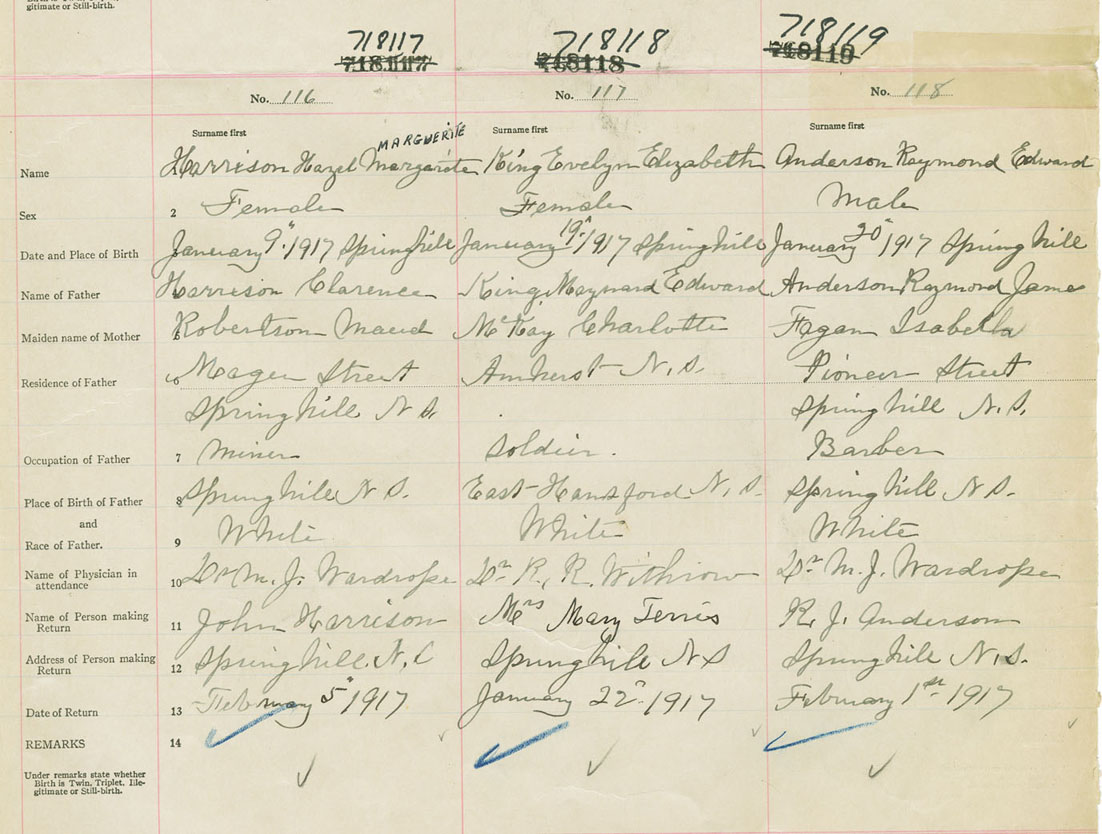 gitimate or Still-birth.
718117 718118 718119
718117 718118 718119
No. 116 No. 117 No. 118
Surname first Surname first Surname first
MARGUERITE
Name Harrison Hazel Margarite King Evelyn Elizabeth Anderson Raymond Edward
Sex 2 Female Female Male
Date and Place of Birth January 9" 1917 Springhill January 19" 1917 Springhill January 20" 1917 Springhill
Name of Father Harrison Clarence King, Maynard Edward Anderson Raymond James
Maiden name of Mother Robertson Maud McKay Charlotte Fagan Isabella
Residence of Father 6 Street Amherst N.S. Pioneer Street
Springhill N.S. Springhill N.S.
Occupation of Father 7 Miner Soldier. Barber
Place of Birth of Father 8 Springhill N.S. East Hansford N.S. Springhill N.S.
and
Race of Father. 9 White White White
Name of Physician in attendance 10 Dr M. J. Wardrope Dr R. R. Withrow Dr M. J. Wardrope
Name of Person making Return 11 John Harrison Mrs Mary Ferris R. J. Anderson
Address of Person making Return 12 Springhill, N.S. Springhill N.S Springhill N.S.
Date of Return 13 February 5" 1917 January 22" 1917 February 1st 1917
REMARKS 14
Under remarks state whether
Birth is Twin, Triplet, Ille-
gitimate or Still-birth.